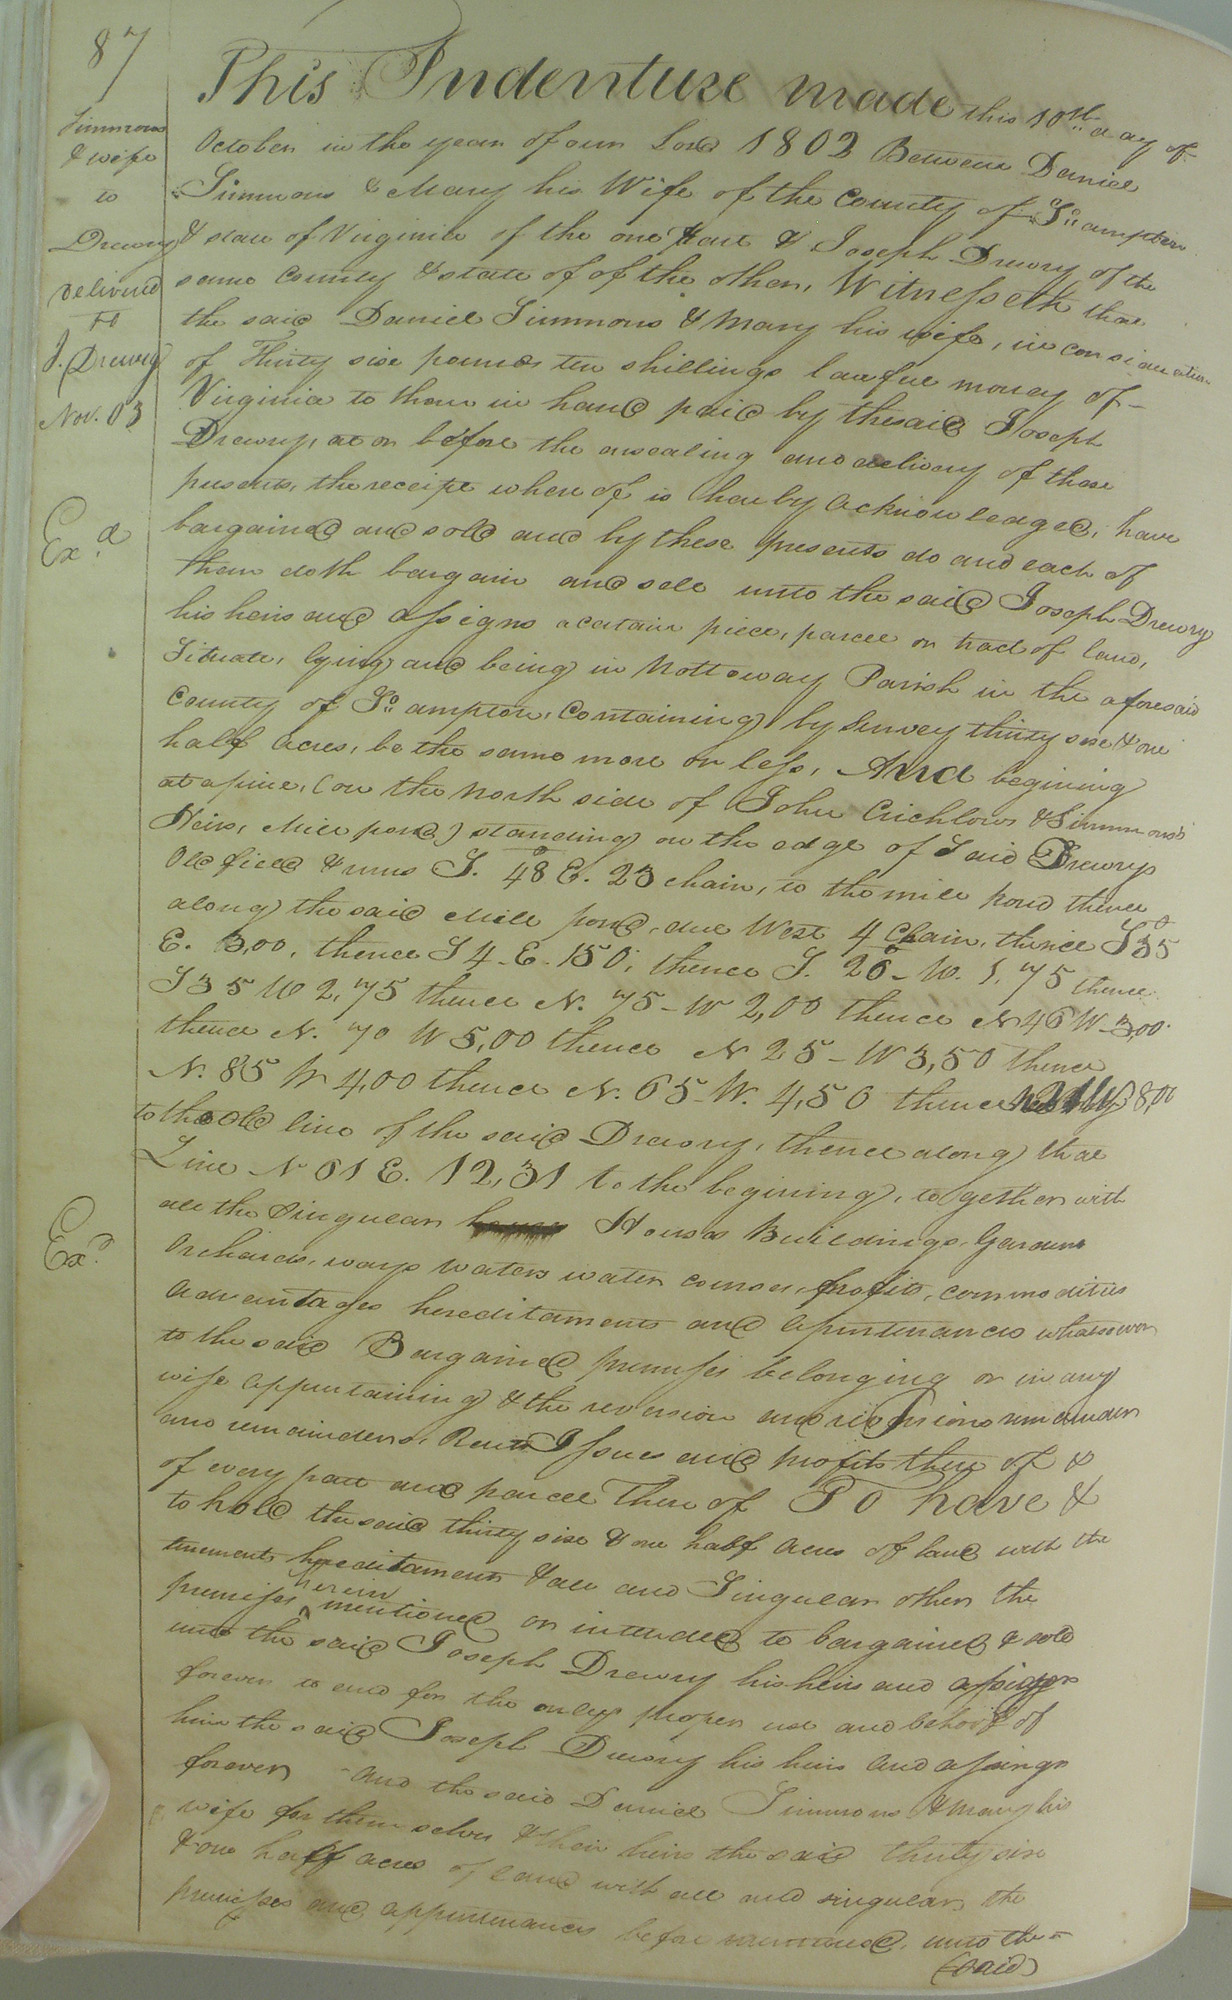 87
Simmons
& wife
to
Drewry
delivered
to
J. Drewry
Nov. 03
Exd
Exd
This Indenture made this 10th day of
October in the year of our Lord 1802 Between Daniel
Simmons & Mary his Wife of the County of So.ampton
& state of Virginia of the one part & Joseph Drewry of the
same County & state of of the other, Witnesseth that
the said Daniel Simmons & Mary his wife, in consideration
of Thirty six pounds ten shillings lawful money of
Virginia to them in hand paid by the said Joseph
Drewry, at or before the ensealing and delivery of these
presents, the receipt where of is hereby acknowledged, have
bargained and sold and by these presents do and each of
them doth bargain and sell unto the said Joseph Drewry
his heirs and assigns a certain piece, parcel or tract of land,
Situate, lying and being in Nottoway Parish in the aforesaid
County of So.ampton, Containing by Survey thirty six & one
half acres, be the same more or less, And begining
at a pine, (on the North side of John Crichlows & Simmons's
Heirs, Mill pond) standing on the edge of Said Drewrys
Old field & runs S. 48 E. 23 chain, to the mill pond thence
along the said Mill pond, due West 4 Chain, thence S 35
E. 3,00, thence S 4 - E - 150; thence S. 26 - W. 1,75 thence
S 35 W 2,75 thence N. 75 - W 2,00 thence N 46 W - 3,00
thence N. 70 W 5,00 thence N 25 - W 3,50 thence
N. 85 W 4,00 thence N. 65 - W. 4,50 thence 8,00
to the Old line of the said Drewry, thence along that
Line N 61 E. 12,31 to the begining, together with
all the Singular Houses Buildings, Gardens
Orchards, ways waters water courses, profits, commodities
advantages hereditaments and apurtenances whatsoever
to the said Bargained premises belonging or in any
wise appurtaining & the reversion and reversions remainder
and remainders, Rents Issues and profits there of &
of every part and parcel There of To have &
to hold the said thirty six & one half acres of land with the
tenements hereditaments & all and Singular other the
premises herein mentioned or intended to bargained & sold
unto the said Joseph Drewry his heirs and assigns
forever to and for the only proper use and behoof of
him the said Joseph Drewry his heirs and assings
forever - and the said Daniel Simmons & Mary his
wife for them selves & their heirs the said thirty six
& one half acres of land with all and singular, the
premises and appurtenances before mentioned, unto the
(said)